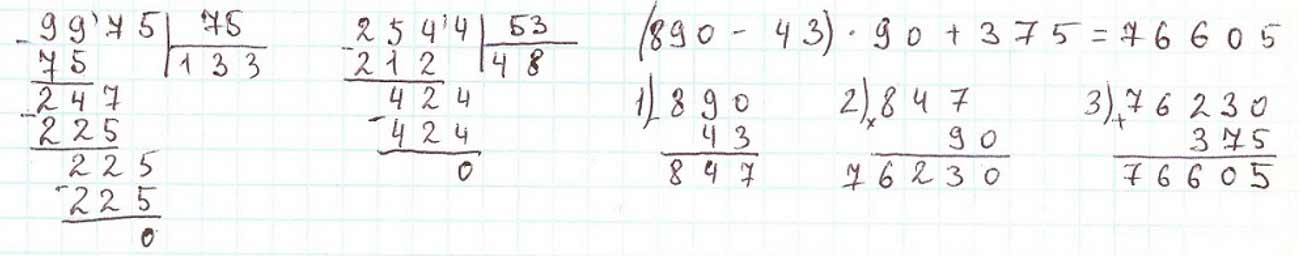 9975 | 75
75 | 133
247
225
225
225
0
2544 | 53
212 | 48
424
424
0
(890 - 43) · 90 + 375 = 76605
1) - 890
43
847
2) × 847
90
76230
3) + 76230
375
76605